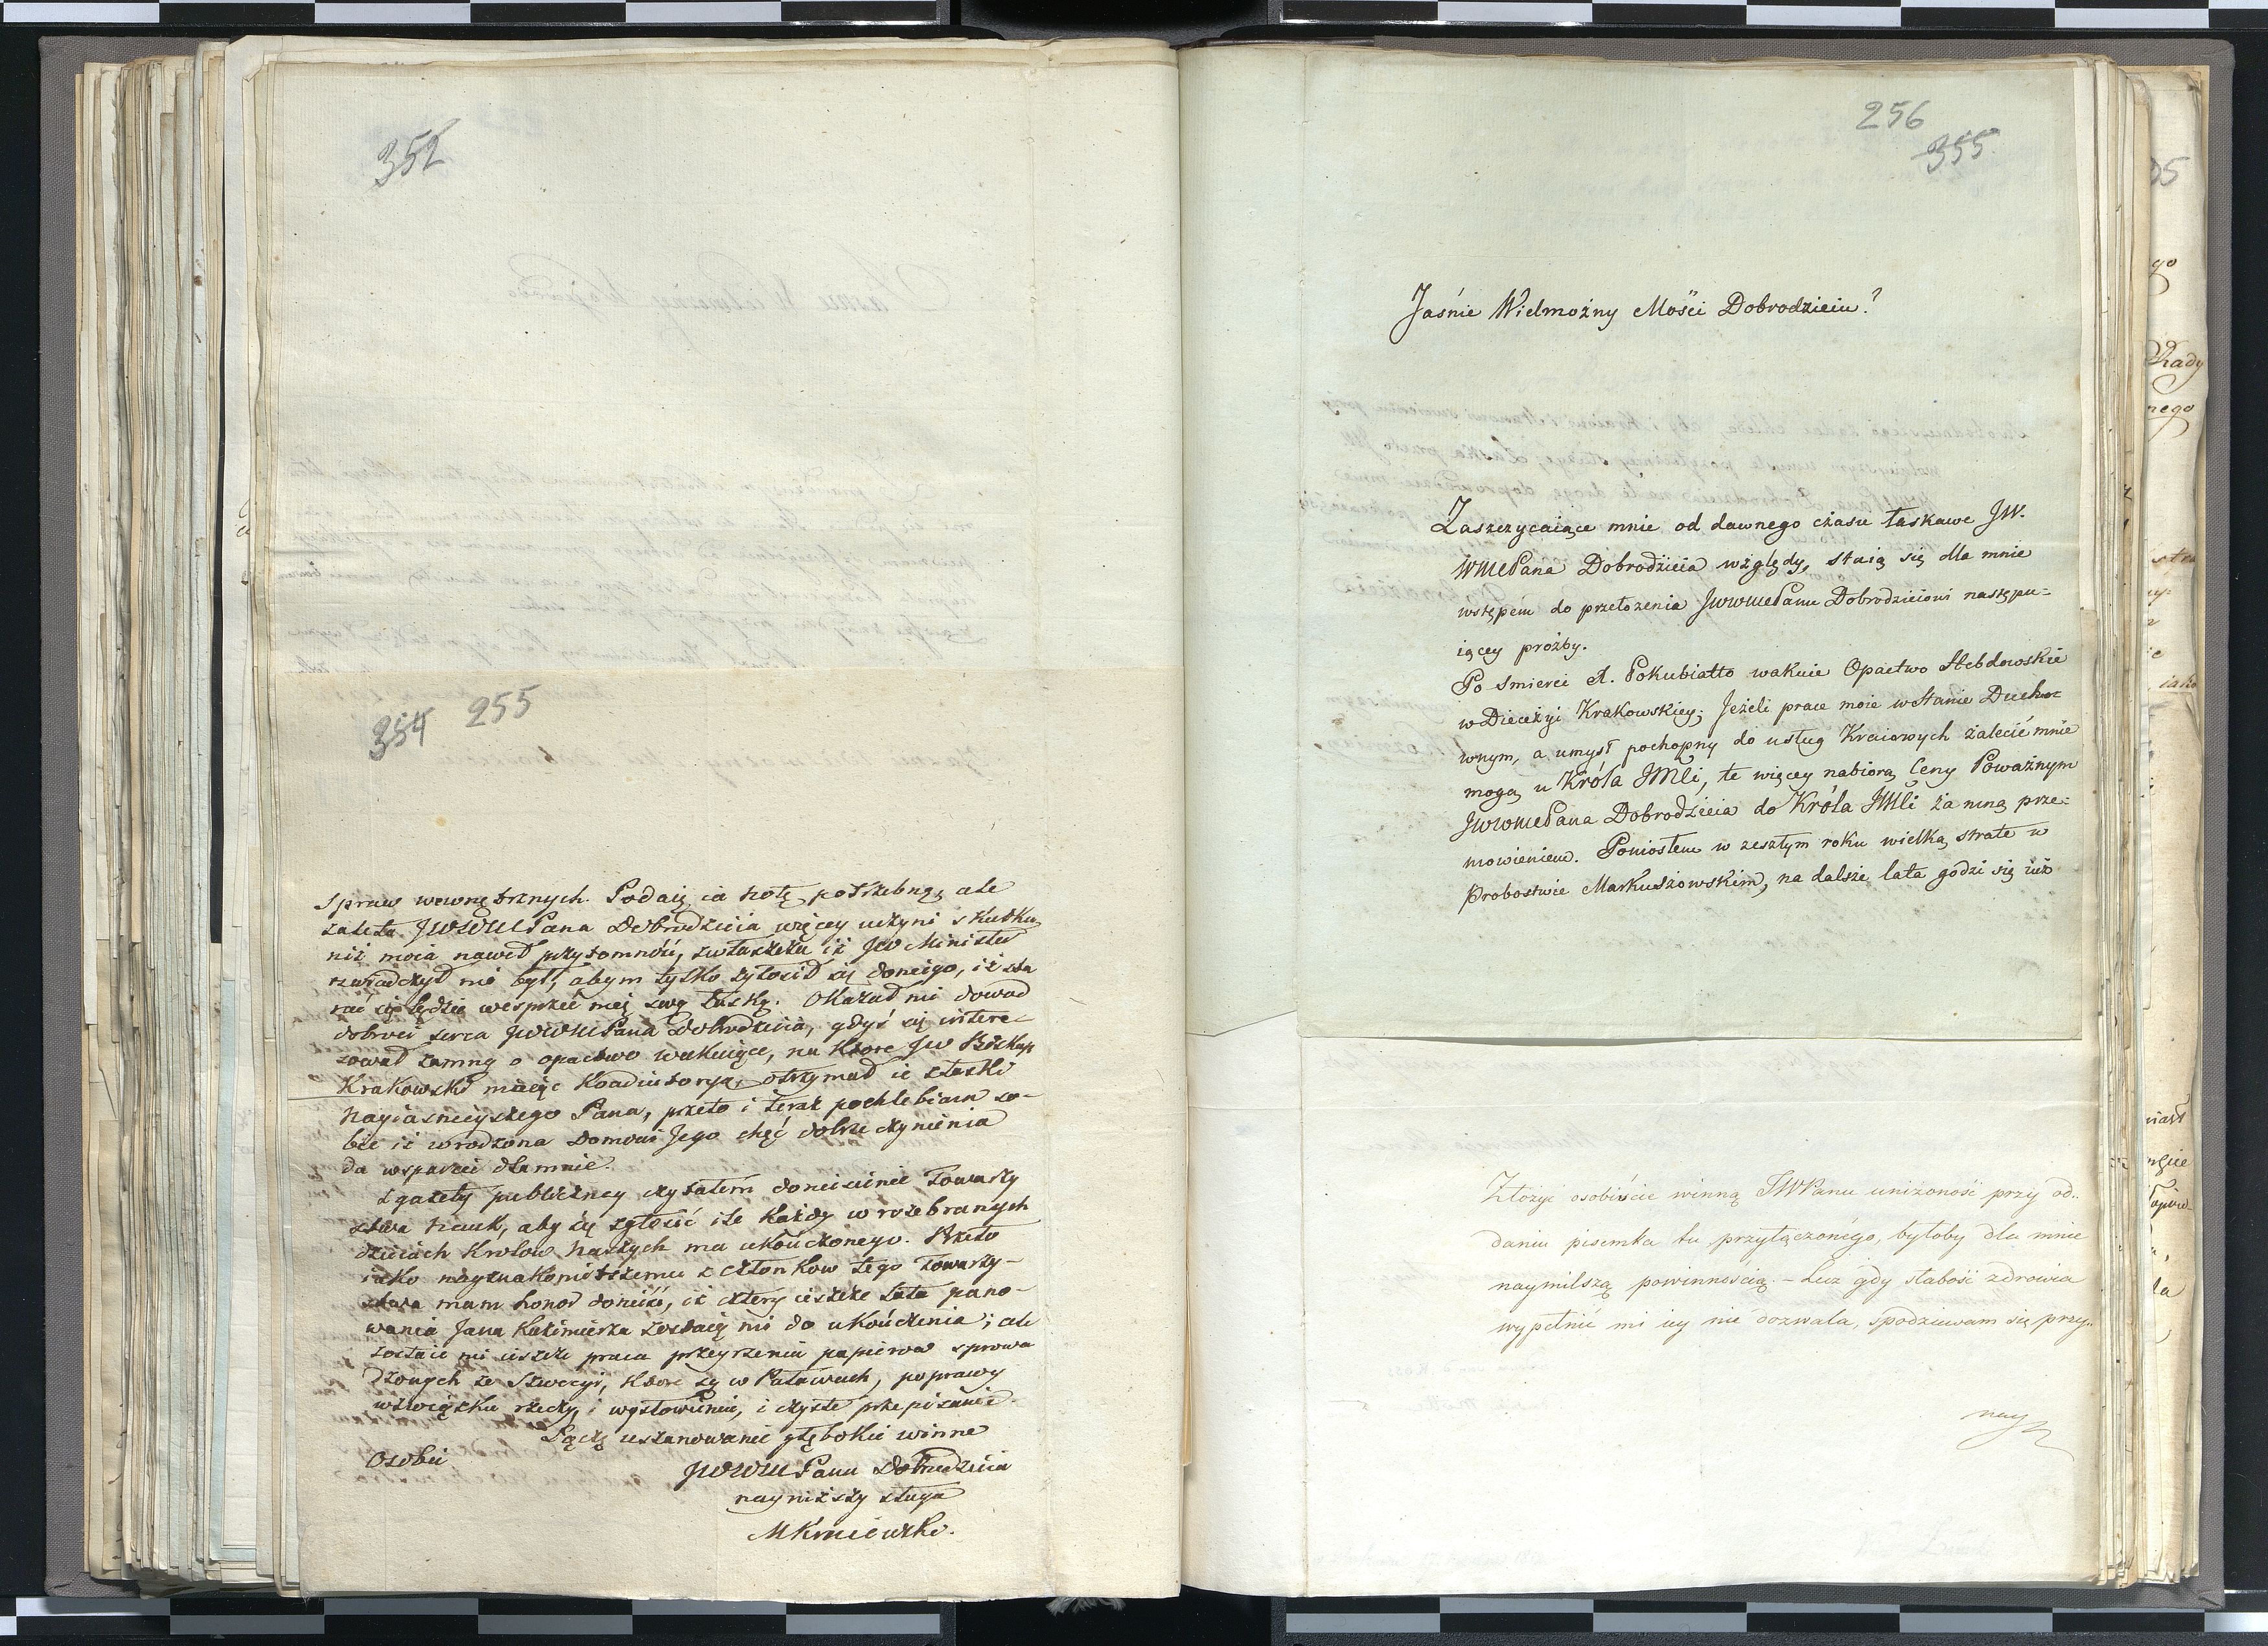 352
354 255
spraw wewnętrznych. Podaię ia notę potrzebną, ale
zaleta JWWMPana Dobrodzieia więcey uczyni skutku,
niż moia nawet przytomność, zwłaszcza iż JW Minister
rzwiadczył mi był, abym tylko zgłosił się doniego, iż sta
rać się będzie wesprzeć mię swą łaską. Okazał mi dowod
dobroci serca JWWMPana Dobrodzieia, gdyś się intere-
sował zamną o opactwo wakuiące, na ktore JW Biskup
Krakowski maiąc Koadiutorya, otrzymał ie z łaski
Nayiasnieyszego Pana, przeto i teraz pochlebiam so-
bie iż wrodzona Domowi Jego chęć dobrze czynienia
da wsparcie dla mnie.
Z gazety publiczney czytałem doniesienie Towarzy
stwa Nauk, aby się zgłosić ile każdy w rozebranych
dzieiach Krolow Naszych ma ukończonego. Przeto
iako nayznakomitszemu z członkow tego Towarzy-
stwa mam honor donieść, iż cztery ieszcze lata pano-
wania Jana Kazimierza zostaią mi do ukończenia; ale
zostaie mi ieszcze praca przeyrzenia papierow sprowa
dzonych ze Szwecyi, ktore są w Puławach, poprawy
wzwiązku rzeczy i wysłowieniu, i czyste przepisanie.
Łączę uszanowanie głębokie winne
Osobie
JWWMPana Dobrodzieia
nayniższy sługa
MKrniewski.
256
355
Jaśnie Wielmożny Mości Dobrodzieiu?
Zaszczycaiące mnie od dawnego czasu łaskawe JW.
WMePana Dobrodzieia względy, staią się dla mnie
wstępem do przełożenia JWWMePanu Dobrodzieiowi następu=
iącey prożby.
Po śmierci X. Pokubiatto wakuie Opactwo Hebdowskie
w Diecezyi Krakowskiey; Jeżeli prace moie w Stanie Ducho=
wnym, a umysł pochopny do usług Kraiowych zalecić mnie
mogą u Króla JMCi, te więcey nabiorą Ceny Poważnym
JWWMePana Dobrodzieia do Króla JMCi za mną prze=
mowieniem. Poniosłem w zeszłym roku wielką stratę w
Probostwie Markuszowskim, na dalsze lata godzi się iuż
Złożyć osobiście winną JWPanu uniżoność przy od..
daniu pisemka tu przyłączonego, byłoby dla mnie
naymilszą powinnością. - Lecz gdy słabość zdrowia
wypełnić mi iey nie dozwala, spodziewam się przy..
nay